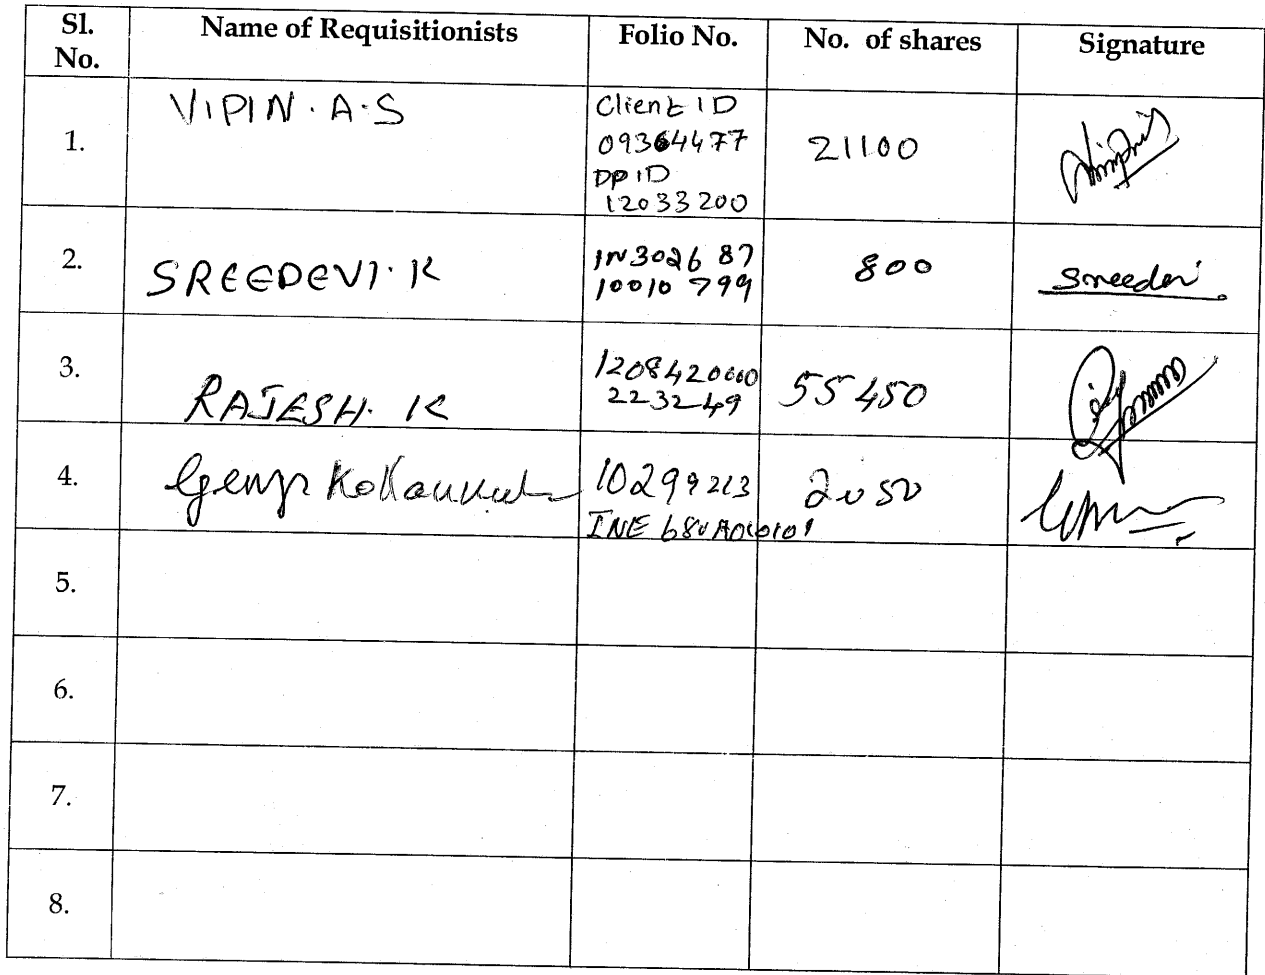 Sl. No. Name of Requisitionists Folio No. No. of shares Signature
1. VIPIN. A. S Client ID 09364477 DP ID 12033200 21100
2. SREEDEVI. K IN302687 10010799 800 Sreedevi
3. RAJESH. K 1208420000 2232249 55450
4. 10299213 INE 680A01010 2050
5.
6.
7.
8.